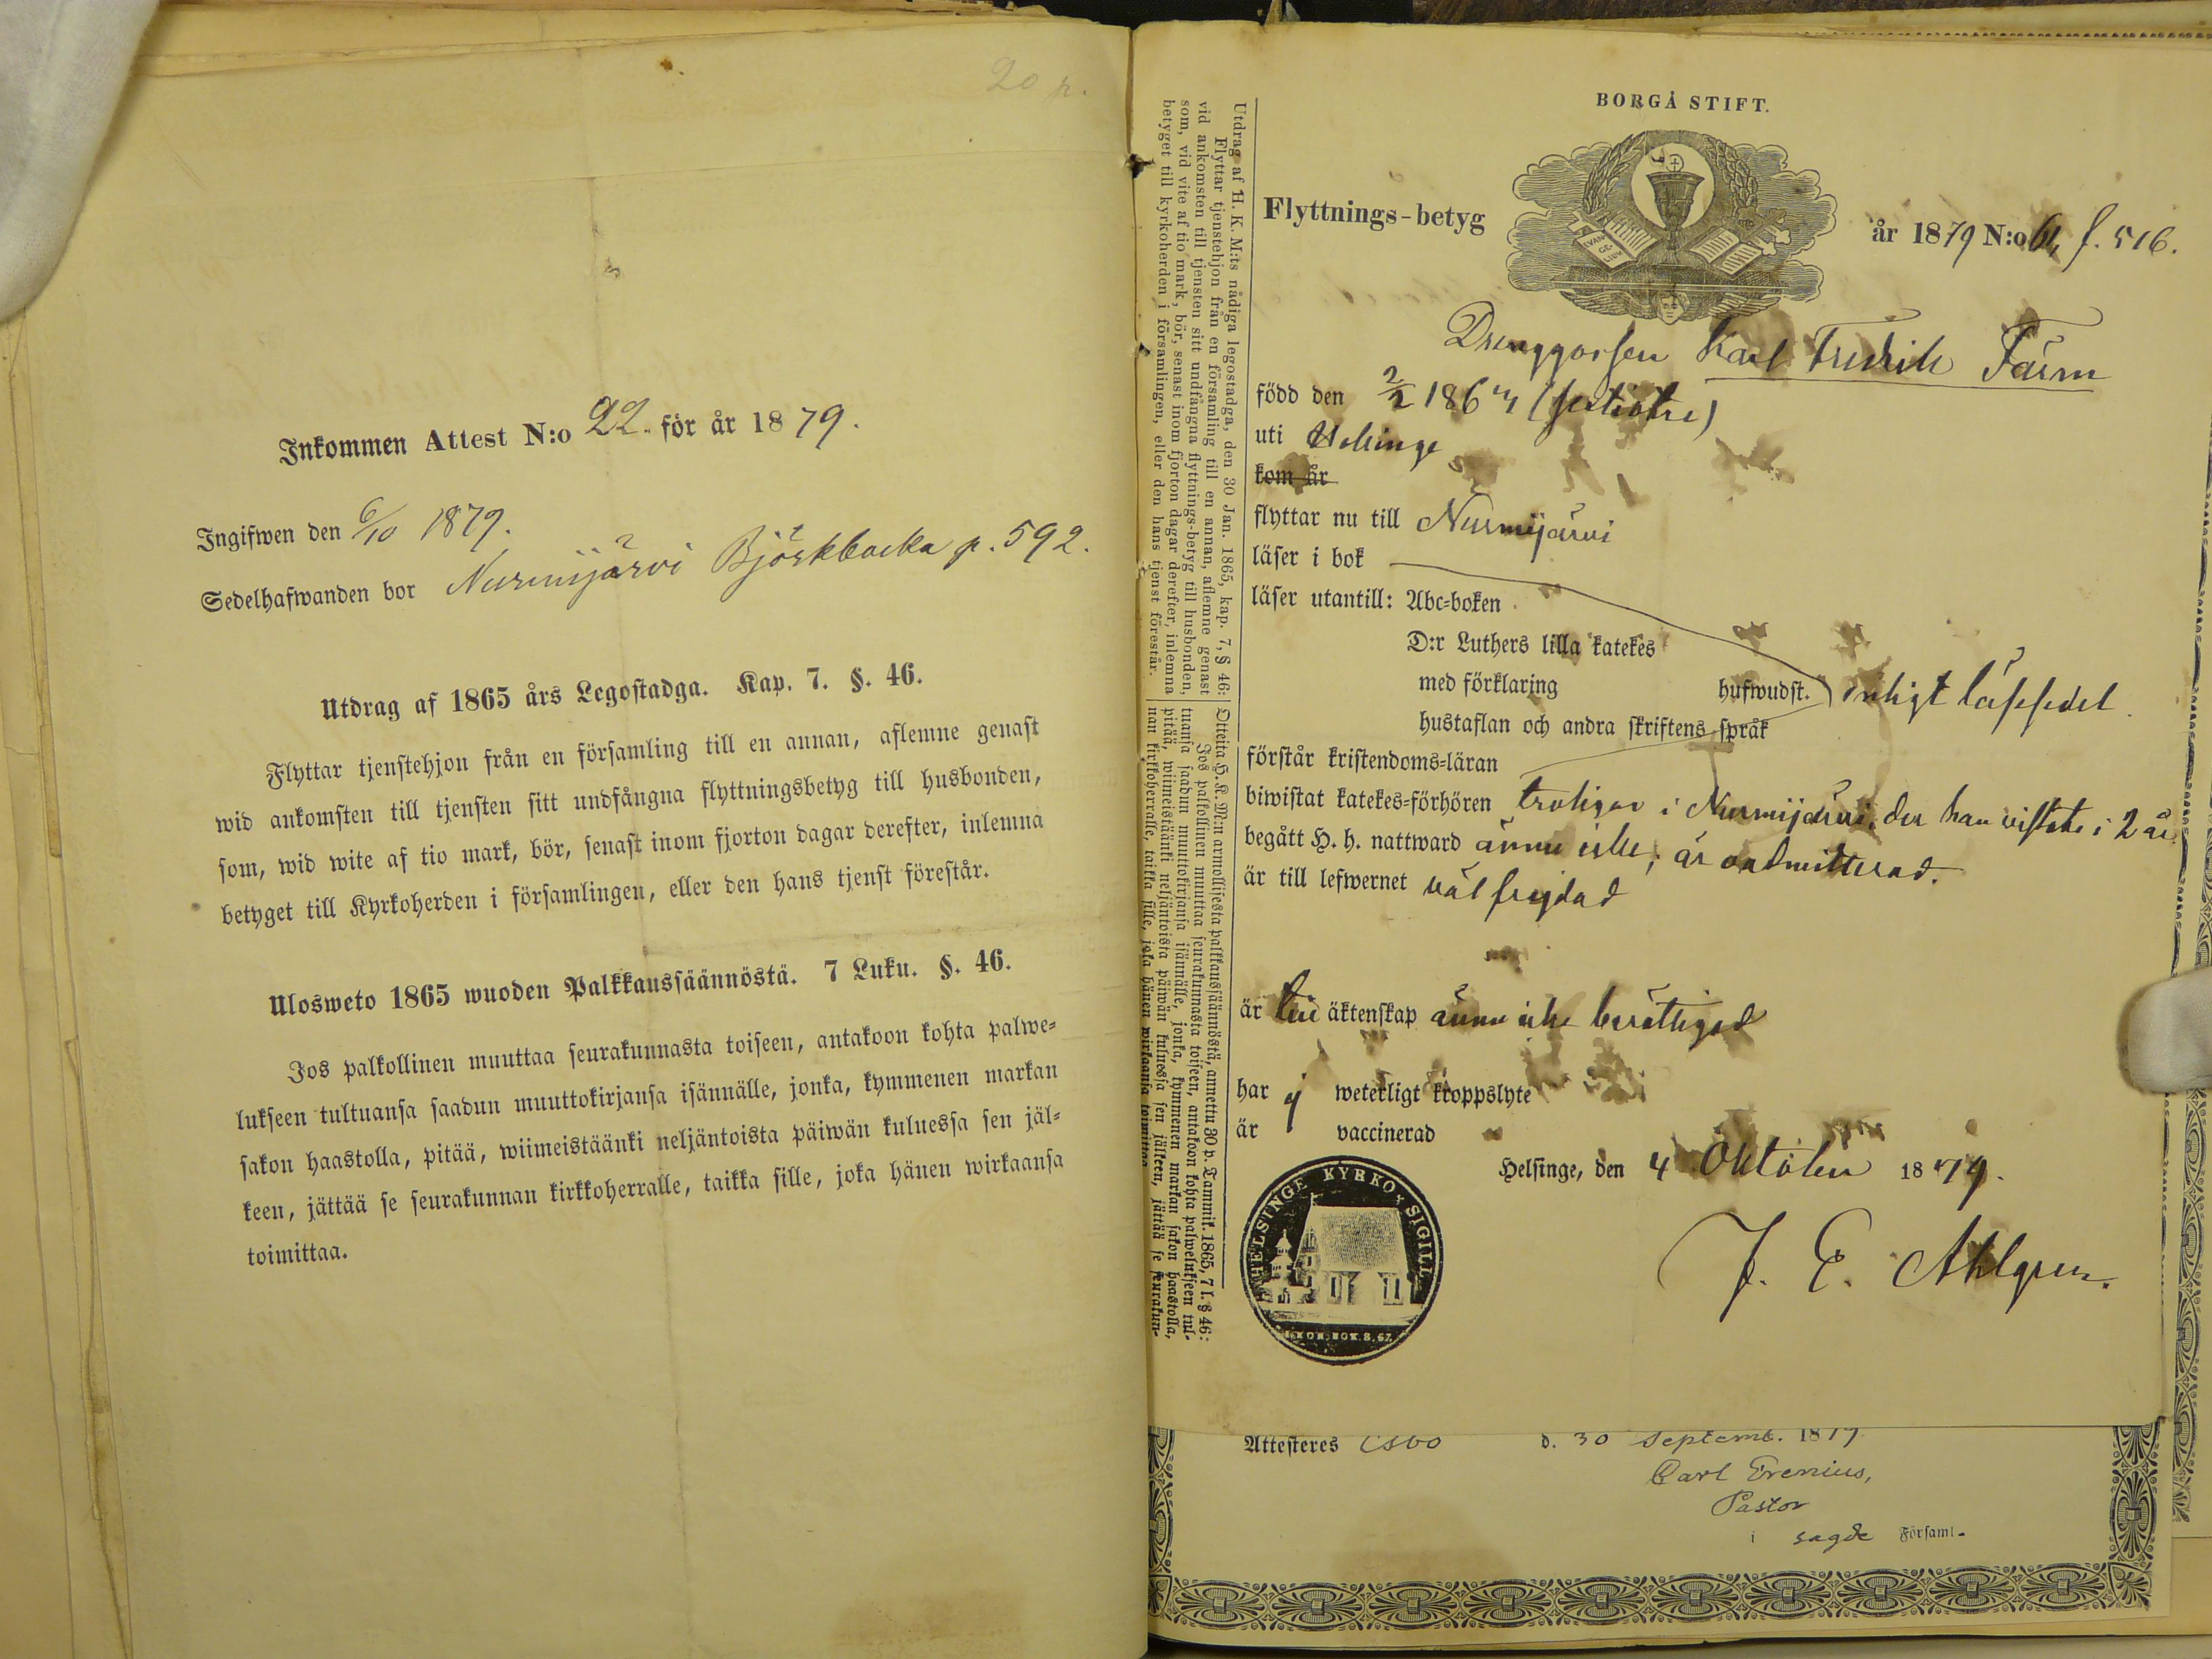 20 p.
Inkommen Attest N:o 22. för år 1879.
Ingifwen den 6/10 1879.
Sedelhafwanden bor Nurmijärvi Björkbacka p. 592.
Utdrag af 1865 års Legostadga. Kap. 7. §. 46.
Flyttar tjenstehjon från en församling till en annan, aflemne genast
wid ankomsten till tjensten sitt undfångna flyttningsbetyg till husbonden,
som, wid wite af tio mark, bör, senast inom fjorton dagar derefter, inlemna
betyget till Kyrkoherden i församlingen, eller den hans tjenst förestår.
Ulosweto 1865 wuoden Palkkaussäännöstä. 7 Luku. §. 46.
Jos palkollinen muuttaa seurakunnasta toiseen, antakoon kohta palwe-
lukseen tultuansa saadun muuttokirjansa isännälle, jonka, kymmenen markan
sakon haastolla, pitää, wiimeistäänki neljäntoista päiwän kuluessa sen jäl-
keen, jättää se seurakunnan kirkkoherralle, taikka sille, joka hänen wirkaansa
toimittaa.
Utdrag af H. K. M:ts nådiga legostadga, den 30 Jan. 1865, kap. 7, § 46:
Flyttar tjenstehjon från en församling till en annan, aflemne genast
vid ankomsten till tjensten sitt undfångna flyttnings-betyg till husbonden,
som, vid vite af tio mark, bör, senast inom fjorton dagar derefter, inlemna
betyget till kyrkoherden i församlingen, eller den hans tjenst förestår.
Otteita H. K. M:n armollisesta palkkaussäännöstä, annettu 30 p. Tammik. 1865, 7 l. § 46:
Jos palkollinen muuttaa seurakunnasta toiseen, antakoon kohta palwelukseen tul-
tuansa saadun muuttokirjansa isännälle, jonka, kymmenen markan sakon haastolla,
pitää, wiimeistäänki neljäntoista päiwän kuluessa sen jälkeen, jättää se seurakun-
nan kirkkoherralle, taikka sille, joka hänen wirkaansa toimittaa
BORGÅ STIFT.
EVAN-
GE-
LIUM
Flyttnings-betyg år 1879 N:o 61, f. 516.
Drenggossen Karl Fredrik Färm
född den 2/2 1864
uti Helsinge
kom år
flyttar nu till Nurmijärvi
läser i bok
läser utantill: Abc-boken
D:r Luthers lilla katekes
med förklaring hufwudst. enligt lässedel.
hustaflan och andra skriftens språk
förstår kristendoms-läran
biwistat katekes-förhören troligen i Nurmijärvi, der han vistats i 2 år.
begått H. h. nattward ännu icke; är oadmitterad.
är till lefwernet väl frejdad
är till äktenskap ännu icke berättigad
har ej weterligt kroppslyte
är vaccinerad
Helsinge, den 4 Oktober 1879.
J. E. Ahlgren.
HELSINGE KYRKO SIGILL
KON. BOK. 8. 67.
Attesteres Esbo d. 30 Septemb. 1879
Carl Grenius,
Pastor
i sagde Församl.